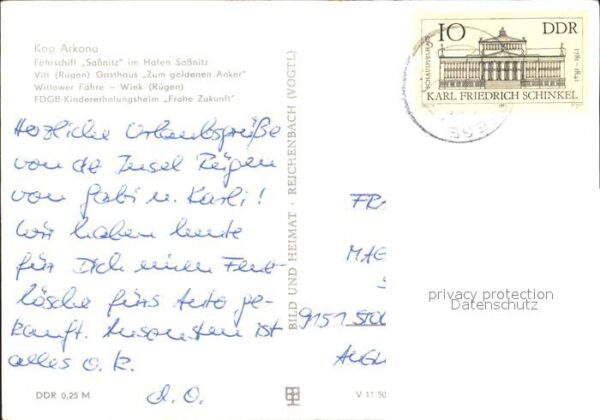 Kap Arkona
Fährschiff „Saßnitz" im Hafen Saßnitz
Vitt (Rügen) Gasthaus „Zum goldenen Anker"
Wittower Fähre – Wiek (Rügen)
FDGB-Kindererholungsheim „Frohe Zukunft"
Herzliche Urlaubsgrüße
von der Insel Rügen
von Gabi u. Karli!
Wir haben heute
für Dich einen Feuer
löscher fürs Auto ge-
kauft. Ansonsten ist
alles o.k.
d.O.
DDR 0,25 M
BILD UND HEIMAT · REICHENBACH (VOGTL)
V 11 50
10 DDR
SCHAUSPIELHAUS
1781–1841
KARL FRIEDRICH SCHINKEL
FR
MAG
9151 STO
privacy protection
Datenschutz